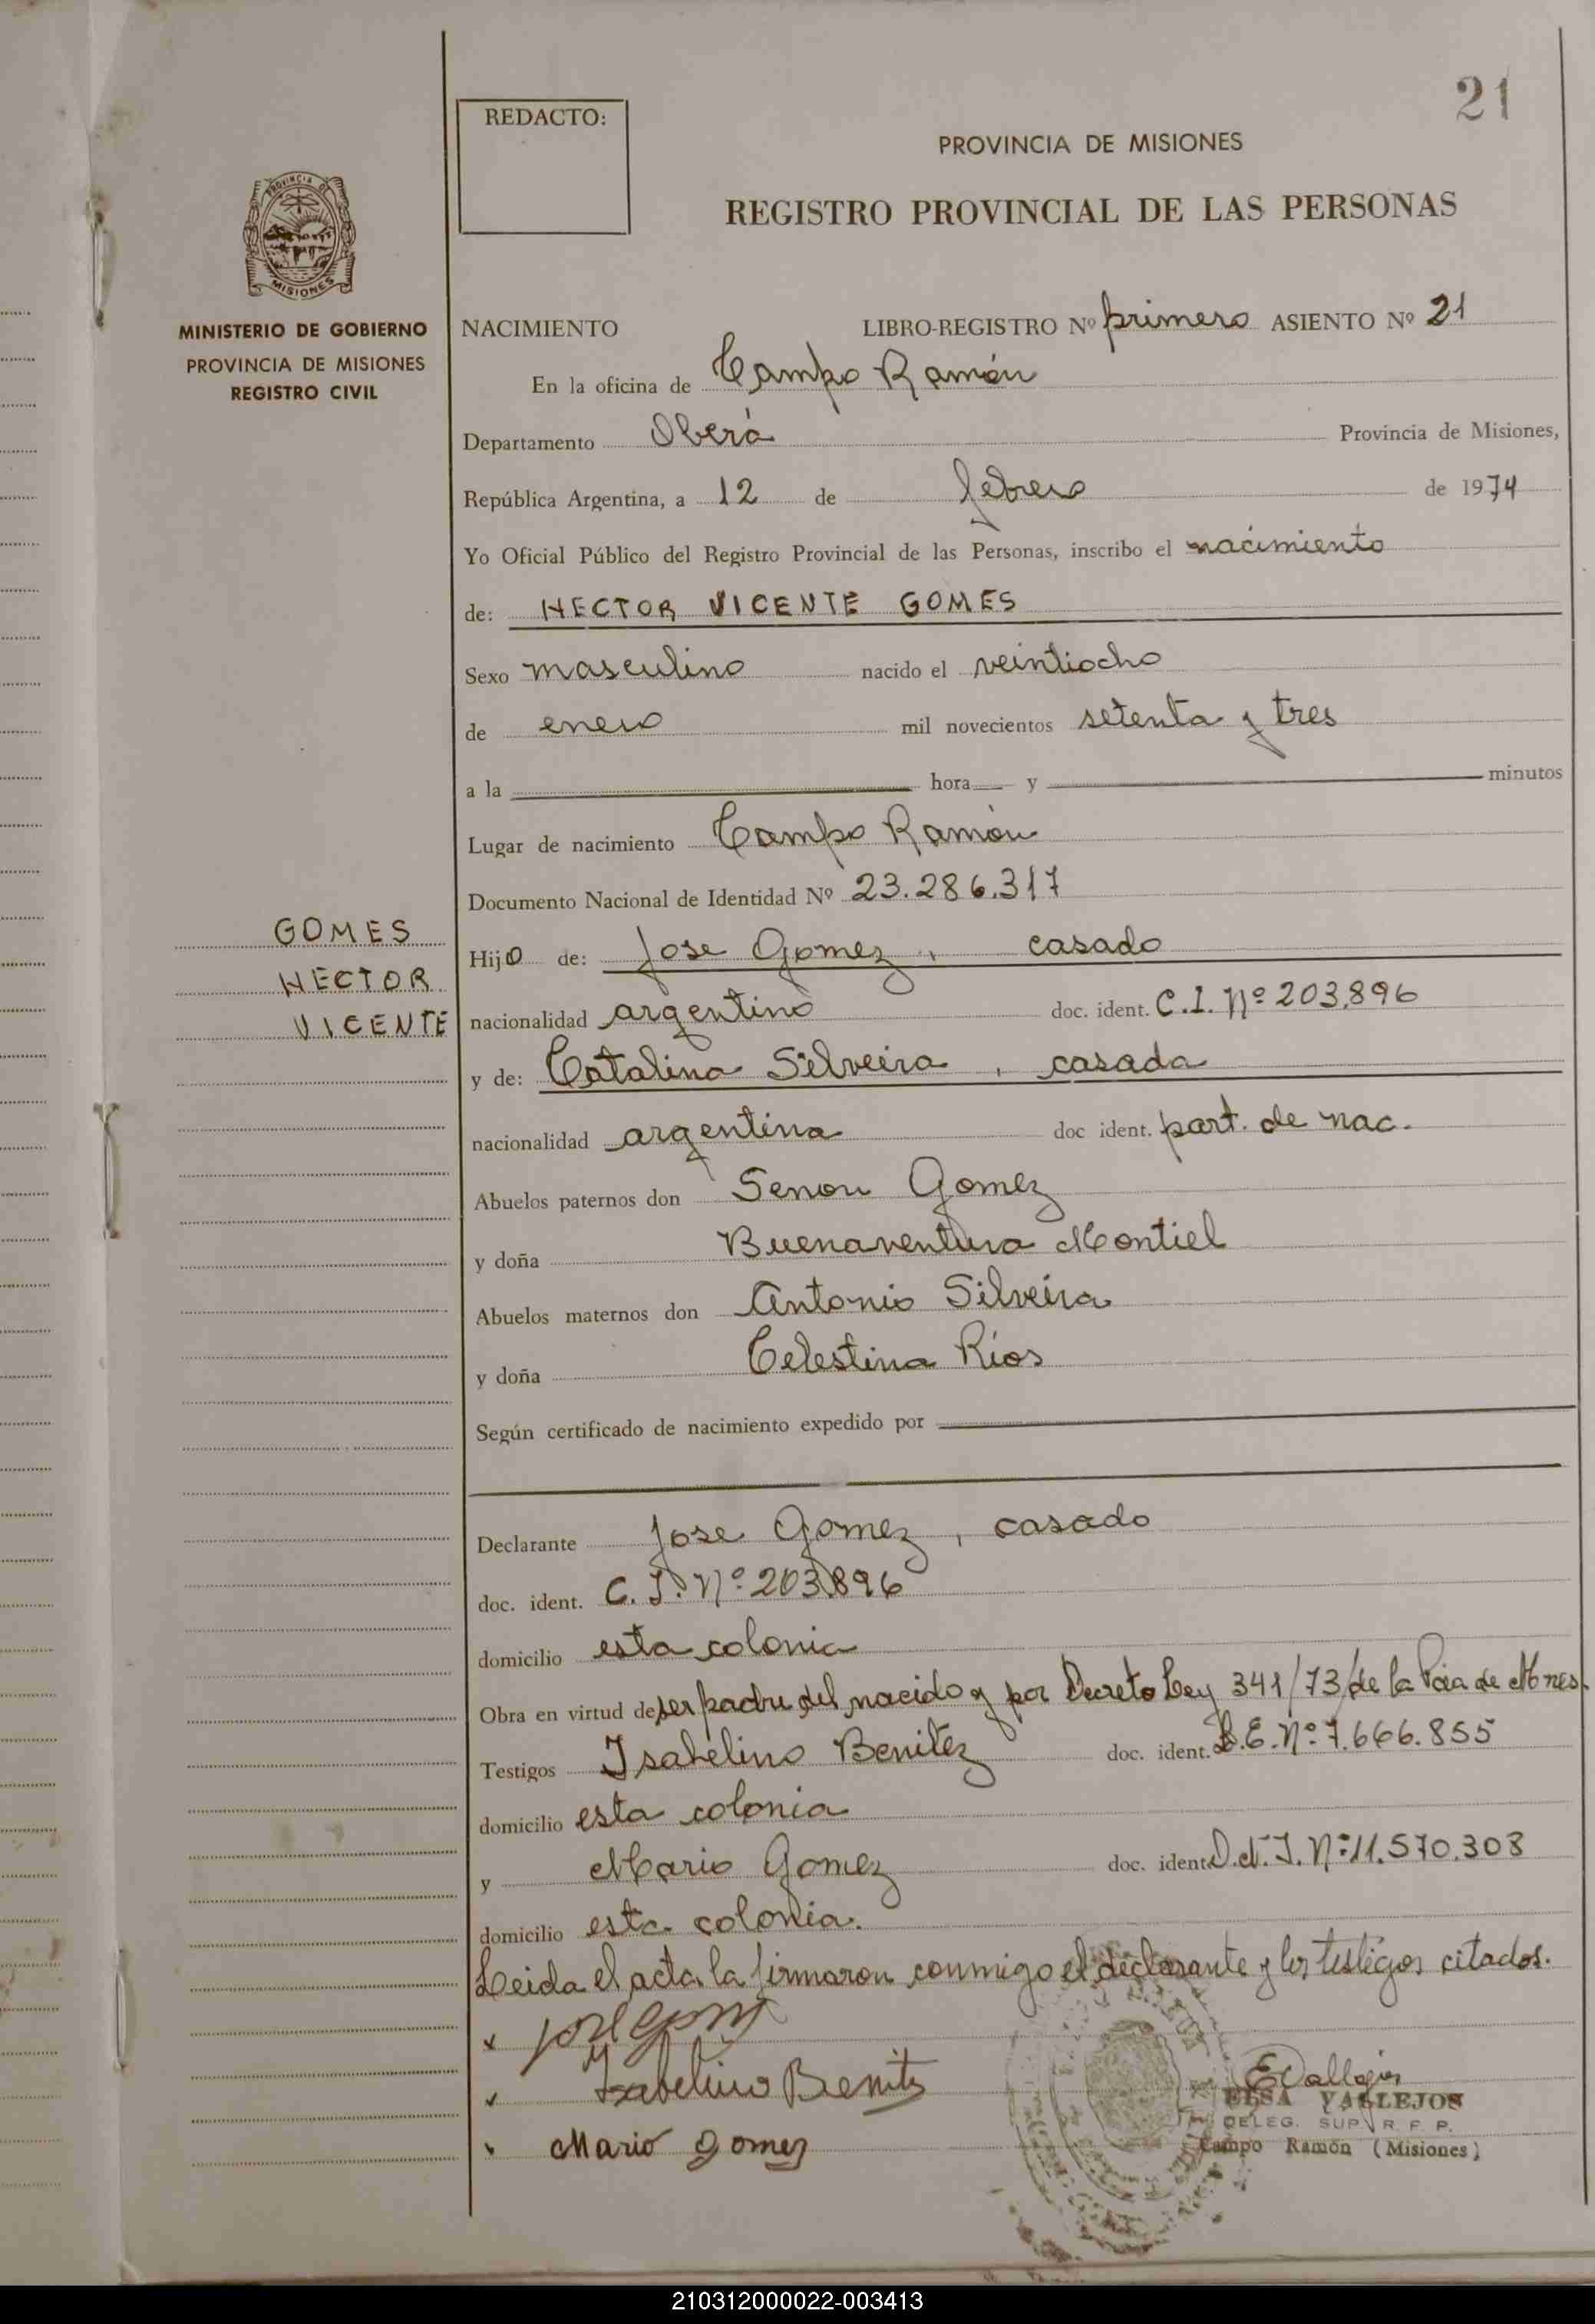 21
REDACTO:
PROVINCIA DE MISIONES
REGISTRO PROVINCIAL DE LAS PERSONAS
PROVINCIA DE
MISIONES
MINISTERIO DE GOBIERNO
PROVINCIA DE MISIONES
REGISTRO CIVIL
NACIMIENTO LIBRO-REGISTRO Nº primero ASIENTO Nº 21
En la oficina de Campo Ramón
Departamento Oberá Provincia de Misiones,
República Argentina, a 12 de febrero de 1974
Yo Oficial Público del Registro Provincial de las Personas, inscribo el nacimiento
de: HECTOR VICENTE GOMES
Sexo masculino nacido el veintiocho
de enero mil novecientos setenta y tres
a la hora y minutos
Lugar de nacimiento Campo Ramón
Documento Nacional de Identidad Nº 23.286.317
GOMES
HECTOR
VICENTE
Hijo de: Jose Gomez, casado
nacionalidad argentino doc. ident. C.I. Nº 203,896
y de: Catalina Silveira, casada
nacionalidad argentina doc ident. part. de nac.
Abuelos paternos don Senon Gomez
y doña Buenaventura Montiel
Abuelos maternos don Antonio Silveira
y doña Celestina Ríos
Según certificado de nacimiento expedido por
Declarante Jose Gomez, casado
doc. ident. C.I. Nº 203.896
domicilio esta colonia
Obra en virtud de ser padre del nacido y por Decreto Ley 341/73 de la Pcia de Mnes.
Testigos Isabelino Benitez doc. ident. L.E. Nº 7.666.855
domicilio esta colonia
y Mario Gomez doc. ident. D.N.I. Nº 11.570.303
domicilio esta colonia.
Leida el acta la firmaron conmigo el declarante y los testigos citados.
x Jose Gomez
Isabelino Benitez
Mario Gomez
EVallejos
ELSA VALLEJOS
DELEG. SUP. R. F. P.
Campo Ramón (Misiones)
210312000022-003413